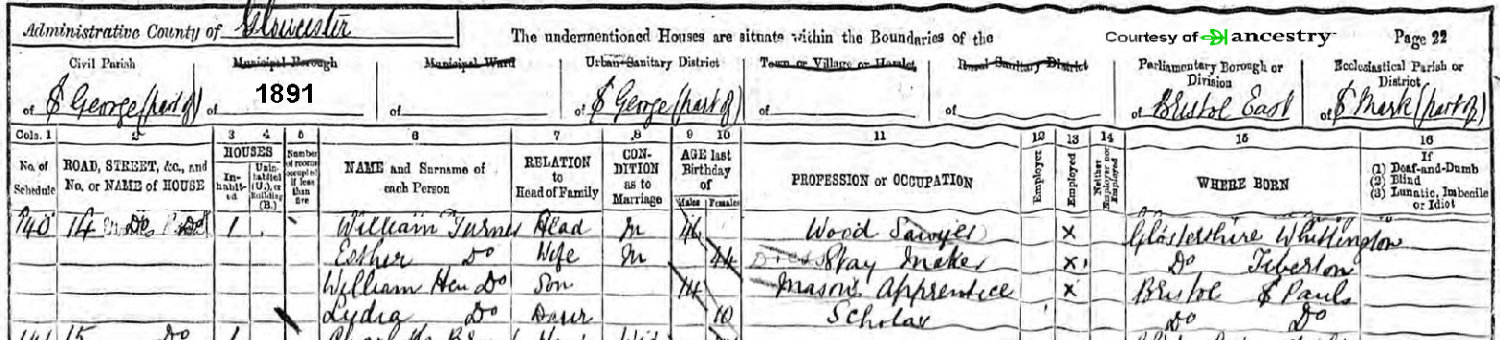 Administrative County of Gloucester
The undermentioned Houses are situate within the Boundaries of the
Courtesy of ancestry
Page 22
Civil Parish Municipal Borough Municipal Ward Urban Sanitary District Town or Village or Hamlet Rural Sanitary District Parliamentary Borough or Division Ecclesiastical Parish or District
of St George (part of) of 1891 of of St George (part of) of of of Bristol East of St Mark (part of)
Cols. 1 2 3 4 5 6 7 8 9 10 11 12 13 14 15 16
No. of Schedule ROAD, STREET, &c., and No. or NAME of HOUSE HOUSES Inhabited Uninhabited (U.), or Building (B.) Number of rooms occupied if less than five NAME and Surname of each Person RELATION to Head of Family CONDITION as to Marriage AGE last Birthday of Males Females PROFESSION or OCCUPATION Employer Employed Neither Employer nor Employed WHERE BORN If (1) Deaf-and-Dumb (2) Blind (3) Lunatic, Imbecile or Idiot
140 14 Do 1 William Turner Head M 46 Wood Sawyer x Glostershire Whittington
Esther Do Wife M 44 Stay Maker x Do Tiberton
William Hen Do Son 14 Mason's Apprentice x Bristol St Pauls
Lydia Do Daur 10 Scholar Do Do
141 15 Do 1